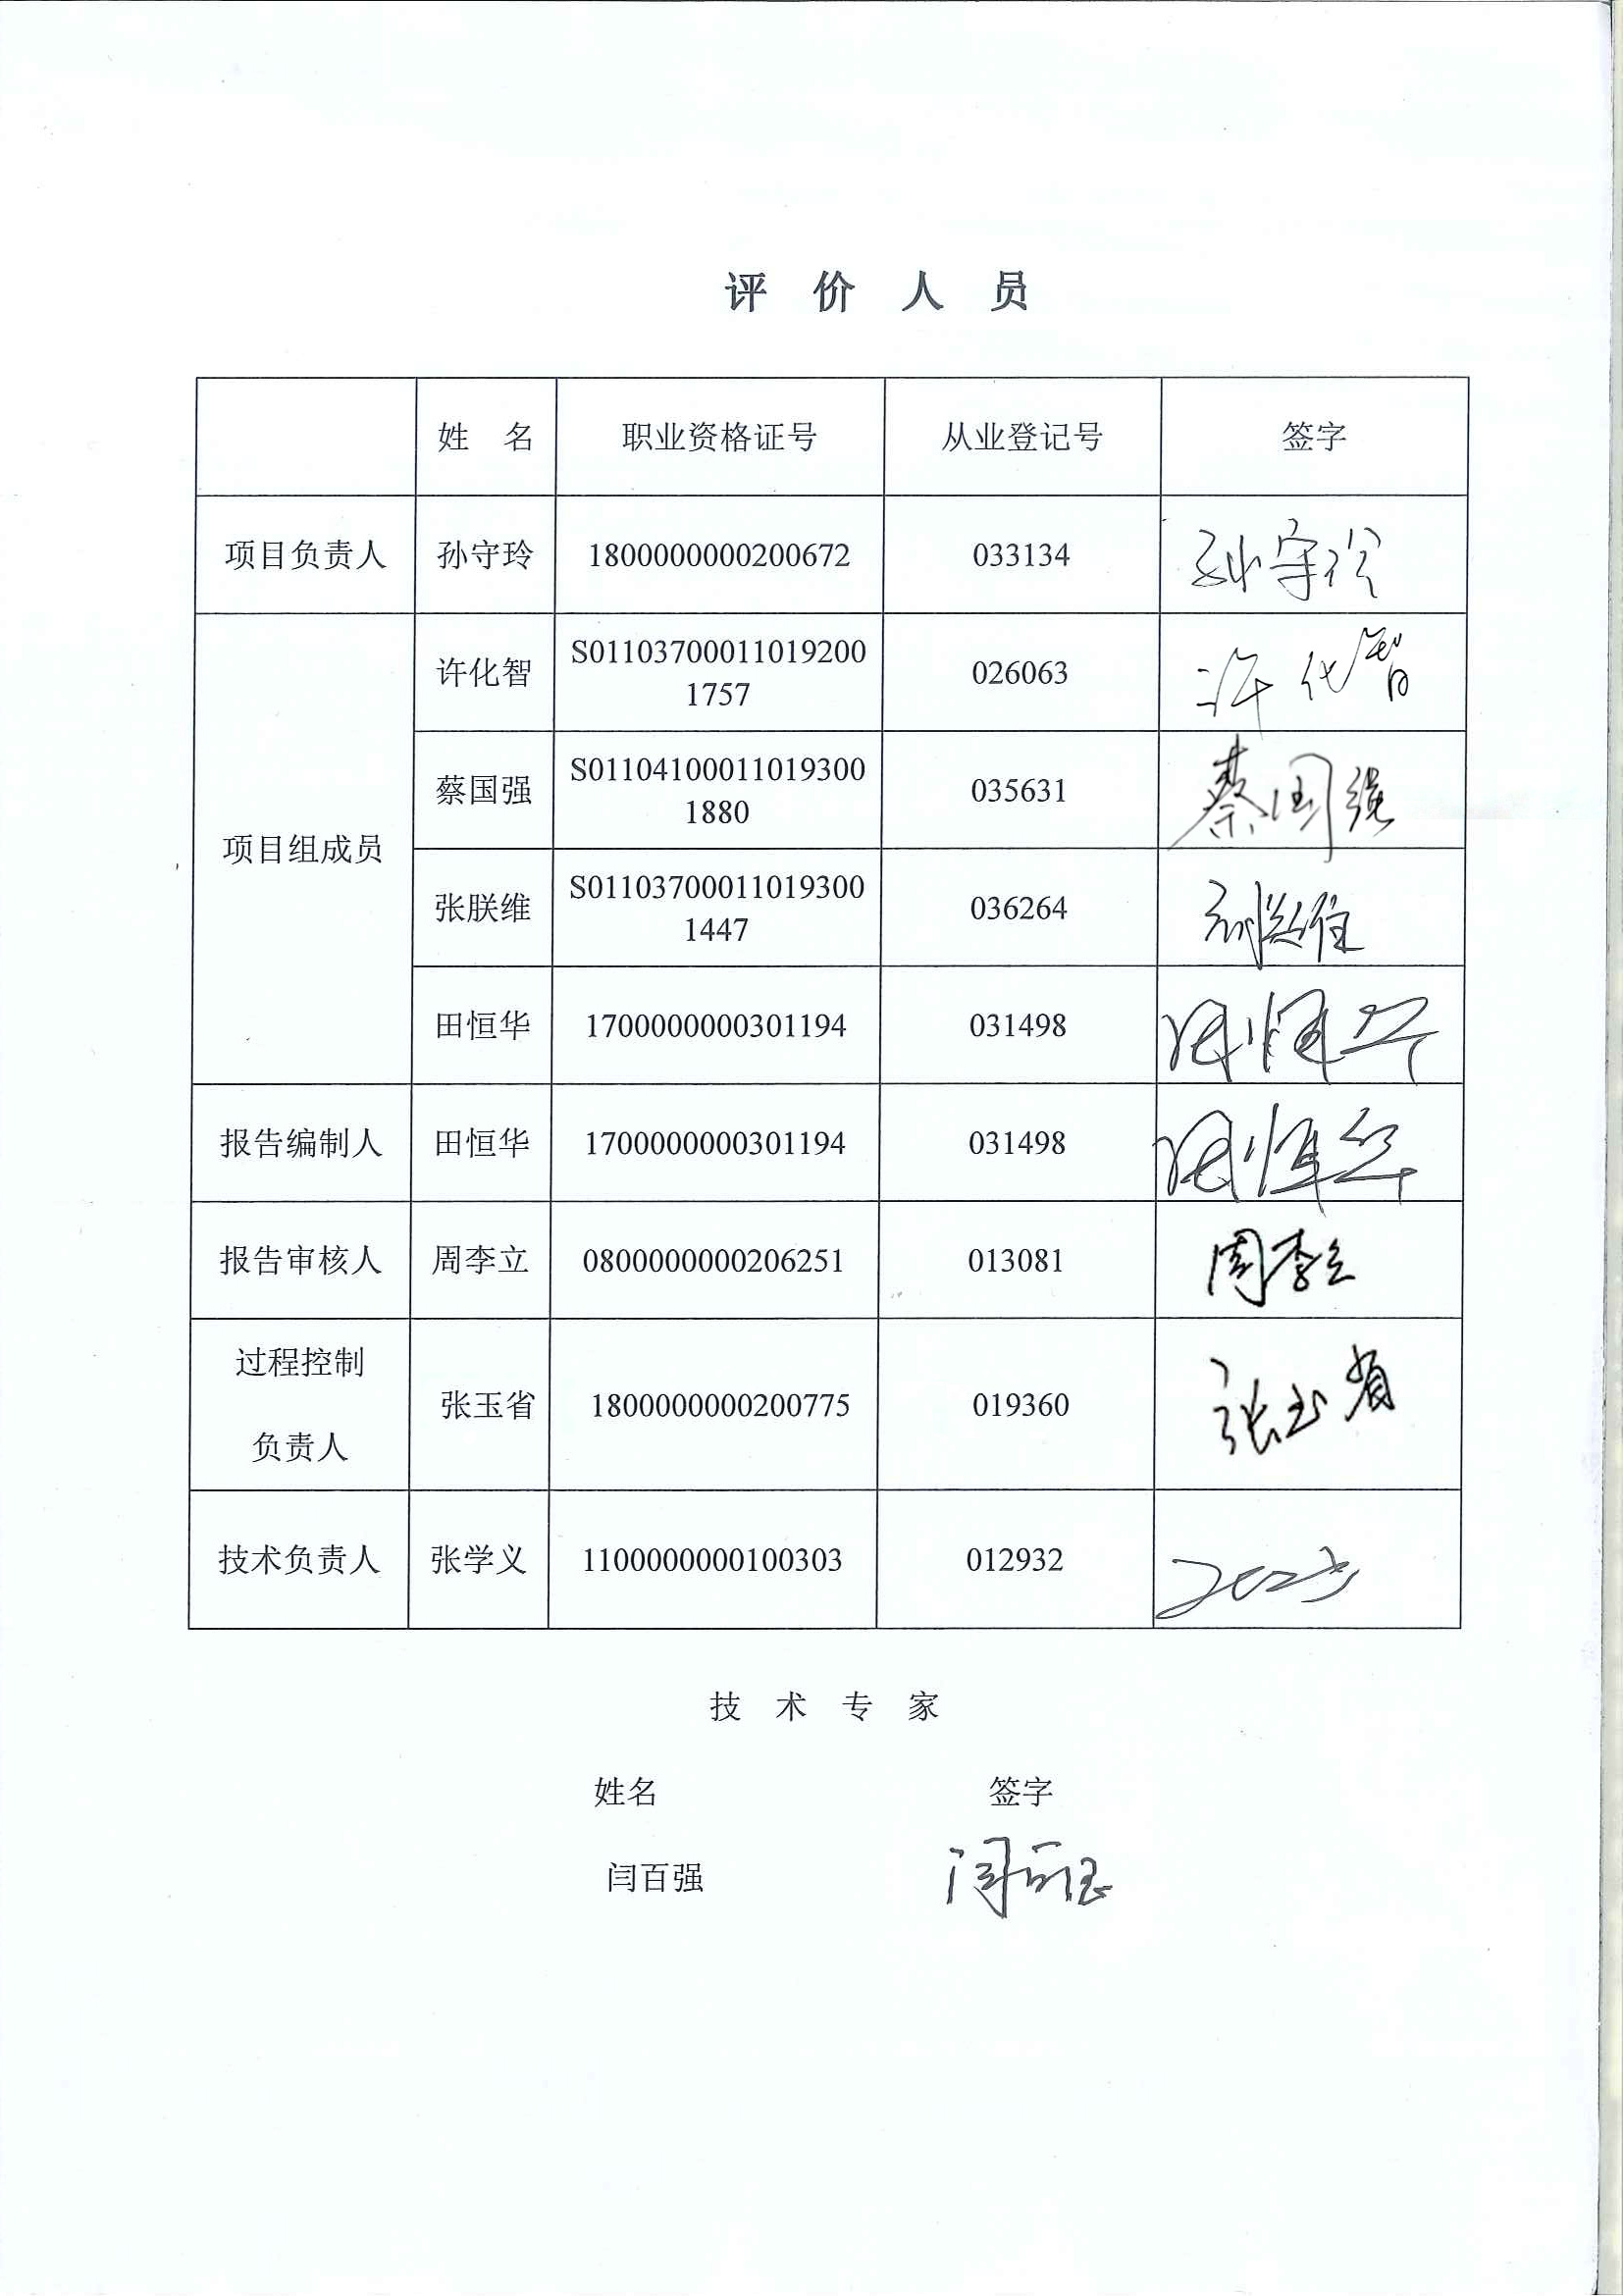 评 价 人 员
姓 名 职业资格证号 从业登记号 签字
项目负责人 孙守玲 1800000000200672 033134 孙守玲
项目组成员
许化智 S01103700011019200 026063 许化智
1757
蔡国强 S01104100011019300 035631 蔡国强
1880
张朕维 S01103700011019300 036264
1447
田恒华 1700000000301194 031498 田恒华
报告编制人 田恒华 1700000000301194 031498 田恒华
报告审核人 周李立 0800000000206251 013081 周李立
过程控制
负责人
张玉省 1800000000200775 019360 张玉省
技术负责人 张学义 1100000000100303 012932
技 术 专 家
姓名 签字
闫百强 闫百强